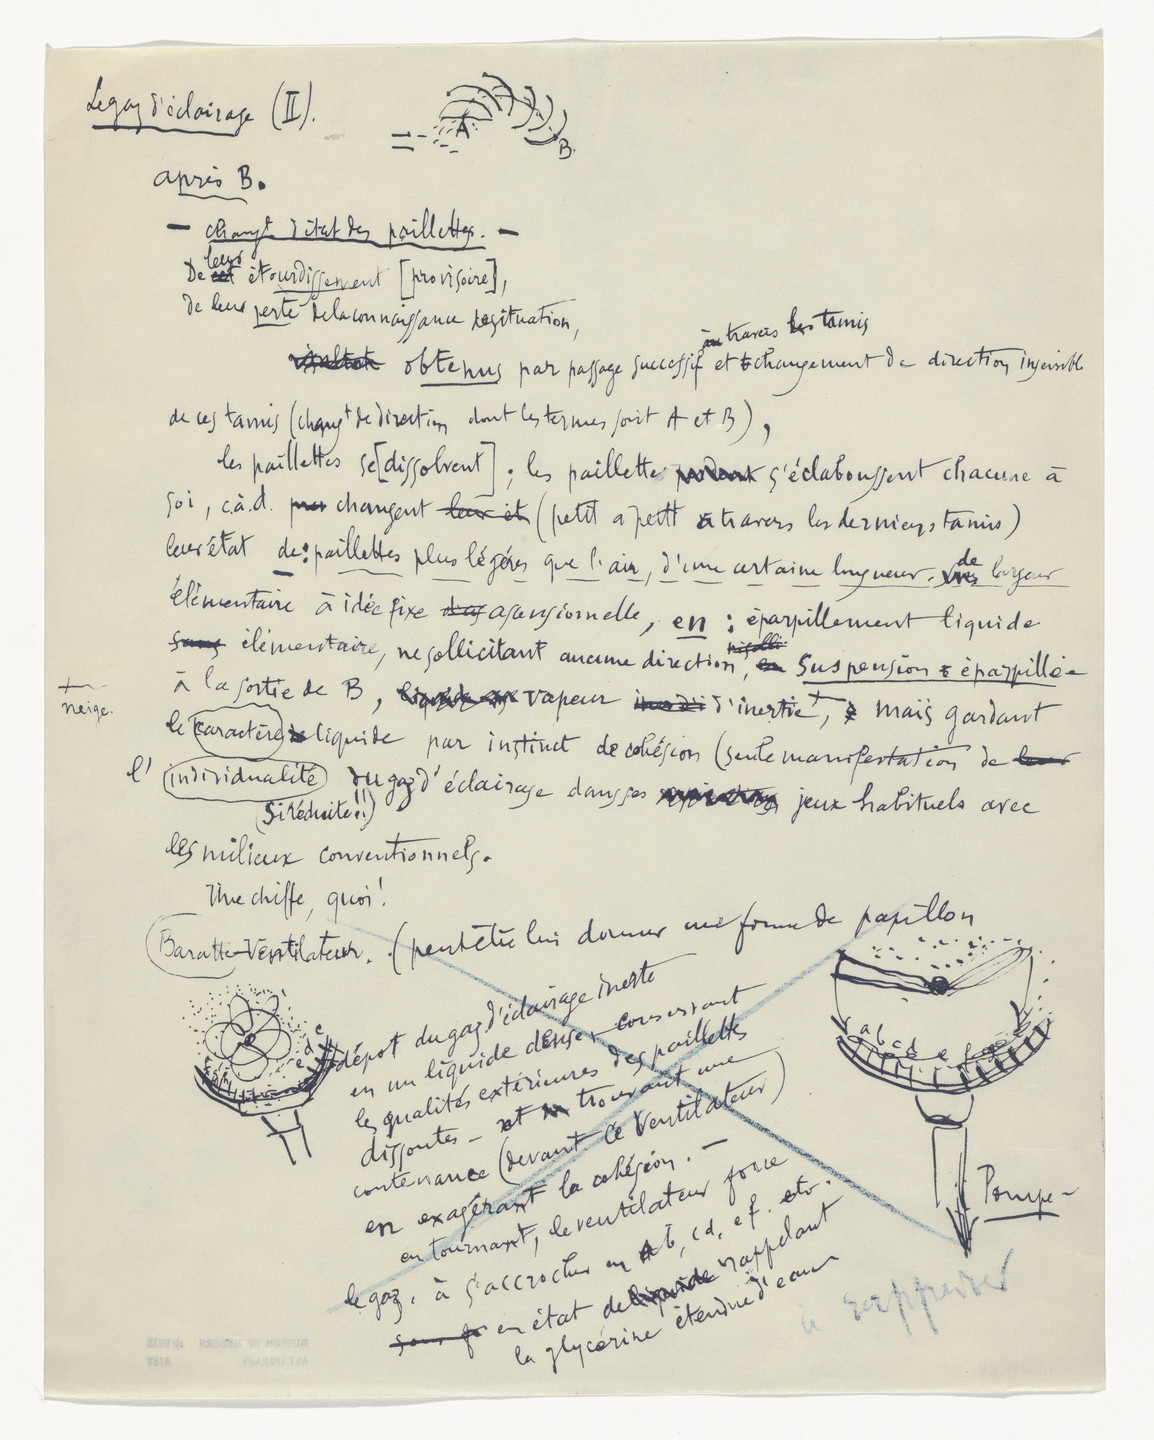 Le gaz d'éclairage (II).
A
B.
après B.
— changt d'état des paillettes. —
leur
De cet étourdissement [provisoire],
de leur perte de la connaissance de situation,
à travers les tamis
résultat obtenus par passage successif et changement de direction insensible
de ces tamis (changt de direction dont les termes sont A et B),
les paillettes se [dissolvent] ; les paillettes s'éclaboussent chacune à
soi, c.à.d. changent leur ét (petit a petit à travers les derniers tamis)
leur état de : paillettes plus légères que l'air, d'une certaine longueur, de largeur
élémentaire à idée fixe ascensionnelle, en : éparpillement liquide
sans élémentaire, ne sollicitant aucune direction, en suspension éparpillée
à la sortie de B, vapeur d'inertie +, mais gardant
+
neige.
le caractère liquide par instinct de cohésion (seule manifestation de leur
l' individualité du gaz d'éclairage dans ses jeux habituels avec
(si réduite !!)
les milieux conventionnels.
Une chiffe, quoi !
Baratte-Ventilateur. (peut être lui donner une forme de papillon
dépot du gaz d'éclairage inerte
en un liquide dense conservant
les qualités extérieures des paillettes
dissoutes — et trouvant une
contenance (devant ce Ventilateur)
en exagérant la cohésion. —
en tournant, le ventilateur force
le gaz, à s'accrocher en Ab, cd, ef. etc.
en état de liquide rappelant
la glycérine étendue d'eau
c
d
e
a b c d e f
Pompe —
à